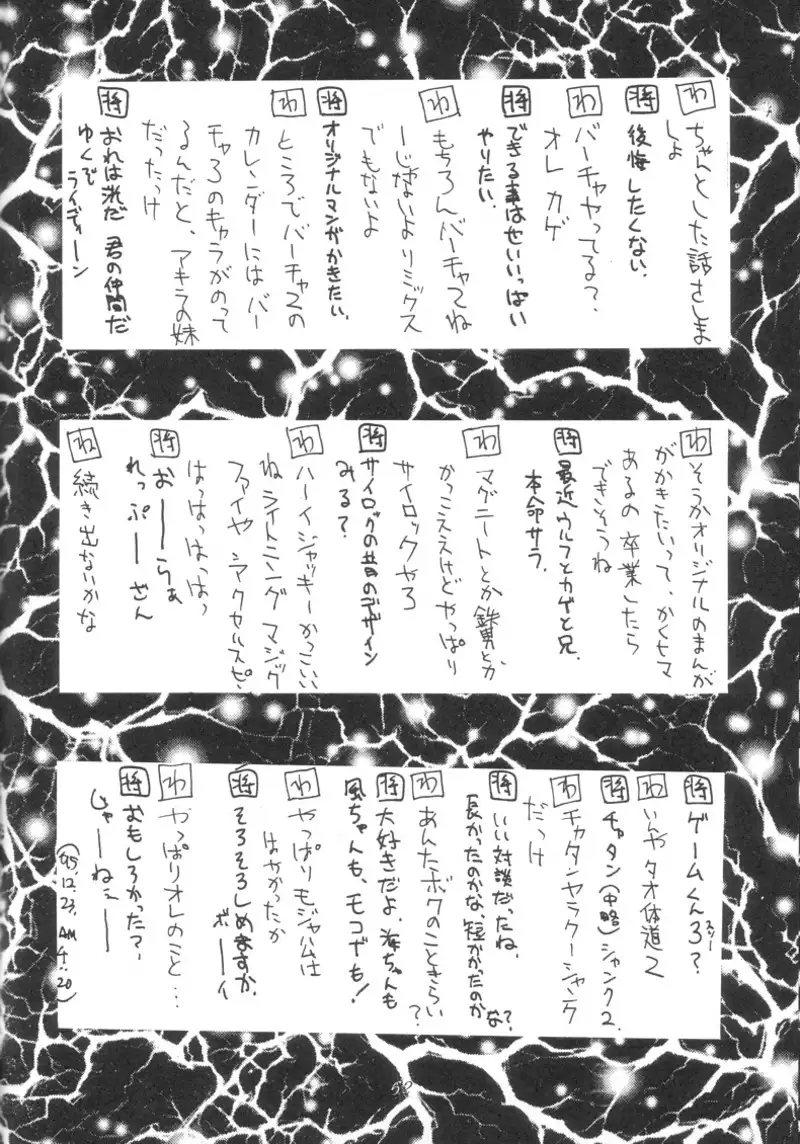 わ ちゃんとした話さしま
しょ
将 後悔したくない。
わ バーチャやってる?
オレ カゲ
将 できる事はせいいっぱい
やりたい。
わ もちろんバーチャ2ね
ーじゃないよリミックス
でもないよ
将 オリジナルマンガかきたい。
わ ところでバーチャ2の
カレンダーにはバー
チャ3のキャラがのって
るんだと、アキラの妹
だったっけ
将 おれは洸だ 君の仲間だ
ゆくぞ
ライディーン
わ そうかオリジナルのまんが
がかきたいって、かくヒマ
あるの 卒業したら
できそうね
将 最近ウルフとカゲと兄。
本命サラ。
わ マグニートとか鉄男とか
かっこええけどやっぱり
サイロックやろ
将 サイロックの昔のデザイン
みる?
わ ハーイジャッキーかっこいい
ね ライトニング マジック
ファイヤ アクセルスピ、
はっはっはっはっ
将 おーーらぁ
れっぷーざん
わ 続き出ないかな
将 ゲームくん3?
わ いんや タオ体道2
将 チャタン(中略)シャンク2。
わ チャタンヤラクーシャンク
だっけ
将 いい対談だったね。
長かったのかな、短かかったのか
な?
わ あんたボクのこときらい
?
将 大好きだよ。海ちゃんも
風ちゃんも、モコナも!
わ やっぱりモジャ公は
はやかったか
将 そろそろしめますか。
ボーイ
わ やっぱりオレのこと…
将 おもしろかった?
じゃーねぇーー
('95.12.23. AM4:20)